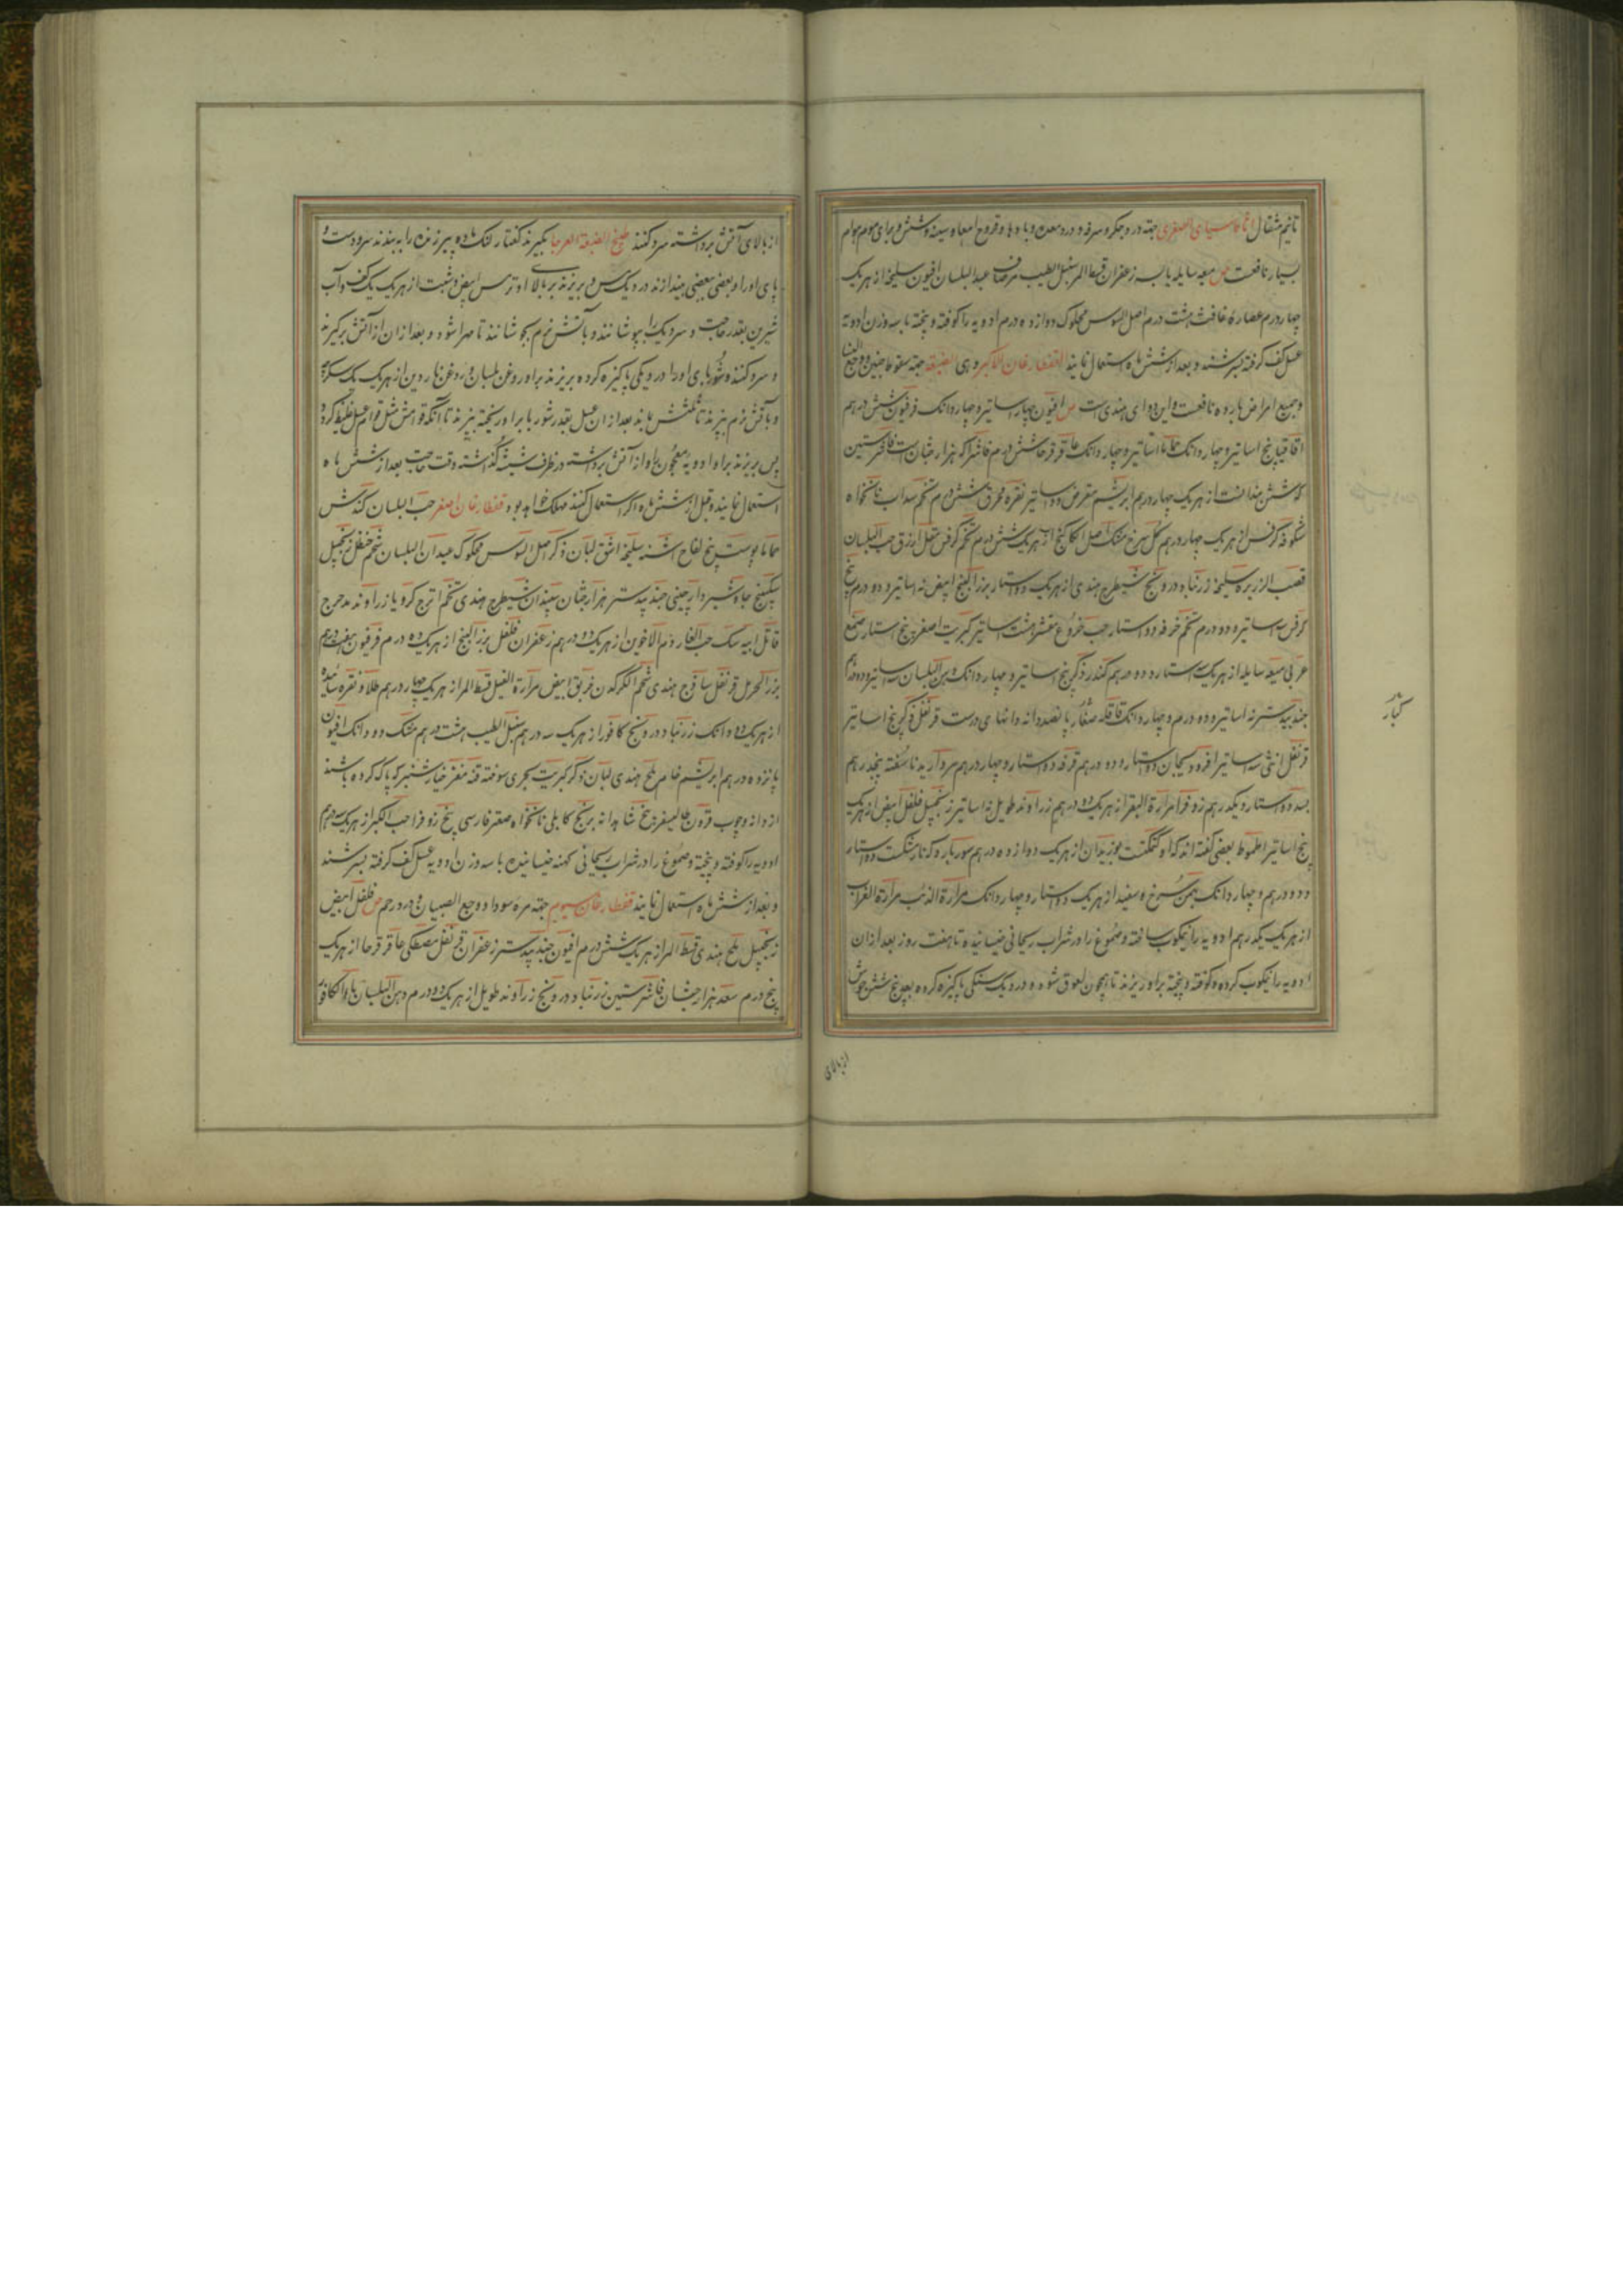 تا نیم مثقال اثاناسیای الصغری جهته درد جگر و سرفه و درد معده و بادها و قروح امعا و سینه و شش و برای سموم هوام
بسیار نافعست ص میعه سایله یابسه زعفران قسط المر سنبل الطیب عید البلسان افیون سلیخه از هریک
چهار درم عصاره غافث هشت درم اصل السوس محکوک دوازده درم ادویه را کوفته و پخته با سه وزن ادویه
عسل کف گرفته بسرشند و بعد از شش ماه استعمال نمایند القفطارغان الاکبر و هی الضبعیه جهته سقوط جنین و وجع النسا
و جمیع امراض بارده نافعست و این دوای هندی است ص افیون چهار اساتیر و چهار دانک فرفیون شش درهم
اقاقیا پنج اساتیر و چهار دانک حماما اساتیر و چهار دانک عاقرقرحا شش درم فاشرا که هزارجشان است فاشرستین
که شش بندانست از هریک چهار درهم ابریشم مقرض دو اساتیر نقره محرق شش درم تخم سداب نانخواه
شکوفه کرفس از هریک چهار درهم گل سرخ مشک اصل الکاکنج از هریک شش درم تخم کرفس مقل ازرق حب البلسان
قصب الزریره سلیخه زرنباد درونج شیطرج هندی از هریک دو استار بزر البنج ابیض نه اساتیر و دو درم بیخ
کرفس سه اساتیر و دو درم تخم خرفه دو استار حب خروع مقشر هشت اساتیر کبریت اصفر پنج استار صمغ
عربی میعه سایله از هریک استار و دو درهم کندر ذکر پنج اساتیر و چهار دانک دهن البلسان سه اساتیر و دو درم
جندبیدستر نه اساتیر و دو درم و چهار دانک قاقله صغار پانصد دانه دانهای درست قرنفل ذکر پنج اساتیر
قرنفل انثی سه اساتیر افرودیسجان دو استار و دو درهم قرفه دو استار و چهار درهم مروارید ناسفته پنجدرهم
بسد دو استار و یکدرهم زوفرا مرارة البقر از هریک ده درهم زراوند طویل نه اساتیر زنجبیل فلفل ابیض از هریک
پنج اساتیر اطموط بعضی گفته اند که او کتکت بوزیدان از هریک دوازده درهم سوربارد که نارمشکست دو استار
و دو درهم و چهار دانک بهمن سرخ و سفید از هریک دو استار و چهار دانک مرارة الذئب مرارة الغراب
از هریک یکدرهم ادویه را نیکوب ساخته و صموغ را در شراب ریحانی خیسانیده تا هفت روز بعد از آن
ادویه را نیکوب کرده و کوفته و پخته براو ریزند تا همچون لعوق شود و در دیک سنکی پاکیزه کرده بعد پنج شش جوش
کبار
از بالای
از بالای آتش برداشته سرد کنند طبیخ الضبعة العرجا بگیرند کفتار لنک ماده پیر زنده را به بندند سر و دست و
پای او را و بعضی ببعضی بیندازند در دیک مس و بریزند بر بالا او ترمس ابیض و شبت از هریک یک کف و آب
شیرین بقدر حاجت و سر دیک را بپوشانند و باتش نرم بجوشانند تا مهرا شود و بعد از آن از آتش برگیرند
و سرد کنند و شوربای او را در دیکی پاکیزه کرده بریزند براو روغن بلسان و روغن ناردین از هریک یک سکرجه
و باتش نرم بپزند تا ثلثش بماند بعد از آن عسل بقدر شوربا براو ریخته بپزند تا آنکه قوامش مثل قوام عسل غلیظ گردد
پس بریزند براو ادویه معجون را و از آتش برداشته در ظرف شیشه گذاشته وقت حاجت بعد از شش ماه
استعمال نمایند و قبل از شش ماه اگر استعمال کنند مهلک خواهد بود قفطارغان اصغر حب البلسان کندش
حماما پوست بیخ لفاح اشنه سلیخه اشق لبان ذکر اصل السوس محکوک عیدان البلسان شحم حنظل زنجبیل
سکبینج جاوشیر دارچینی جندبیدستر هزارجشان سپندان شیطرج هندی تخم اترج کرویا زراوند مدحرج
قاتل ابیه سک حب الغار دم الاخوین از هریک ده درهم زعفران فلفل بزر البنج از هریک ده درم فرفیون هفت درهم
بزر الحرمل قرنفل ساذج هندی شحم الکرکدن خربق ابیض مرارة الفیل قسط المر از هریک چهار درهم طلا و نقره سائیده
از هریک ده دانک زرنباد درونج کافور از هریک سه درهم سنبل الطیب هشت درهم مشک دو دانک افیون
پانزده درهم ابریشم خام ملح هندی لبان ذکر کبریت بحری سوخته قنه مغز خیارشنبر که پاک کرده باشند
از دانه و چوب قرون مالیسفرج شاهدانه برنج کابلی نانخواه صعتر فارسی بیخ زوفرا حب الکبر از هریک سه درهم
ادویه را کوفته و پخته و صموغ را در شراب ریحانی کهنه خیسانیده با سه وزن ادویه عسل کف گرفته بسرشند
و بعد از شش ماه استعمال نمایند قفطارغان سیوم جهته مره سودا و وجع الصبیان و درد رحم ص فلفل ابیض
زنجبیل ملح هندی قسط المر از هریک شش درم افیون جندبیدستر زعفران قرنفل مصطکی عاقرقرحا از هریک
پنج درم سعد هزارجشان فاشرستین زرنباد درونج زراوند طویل از هریک ده درم دهن البلسان ماء الکافور